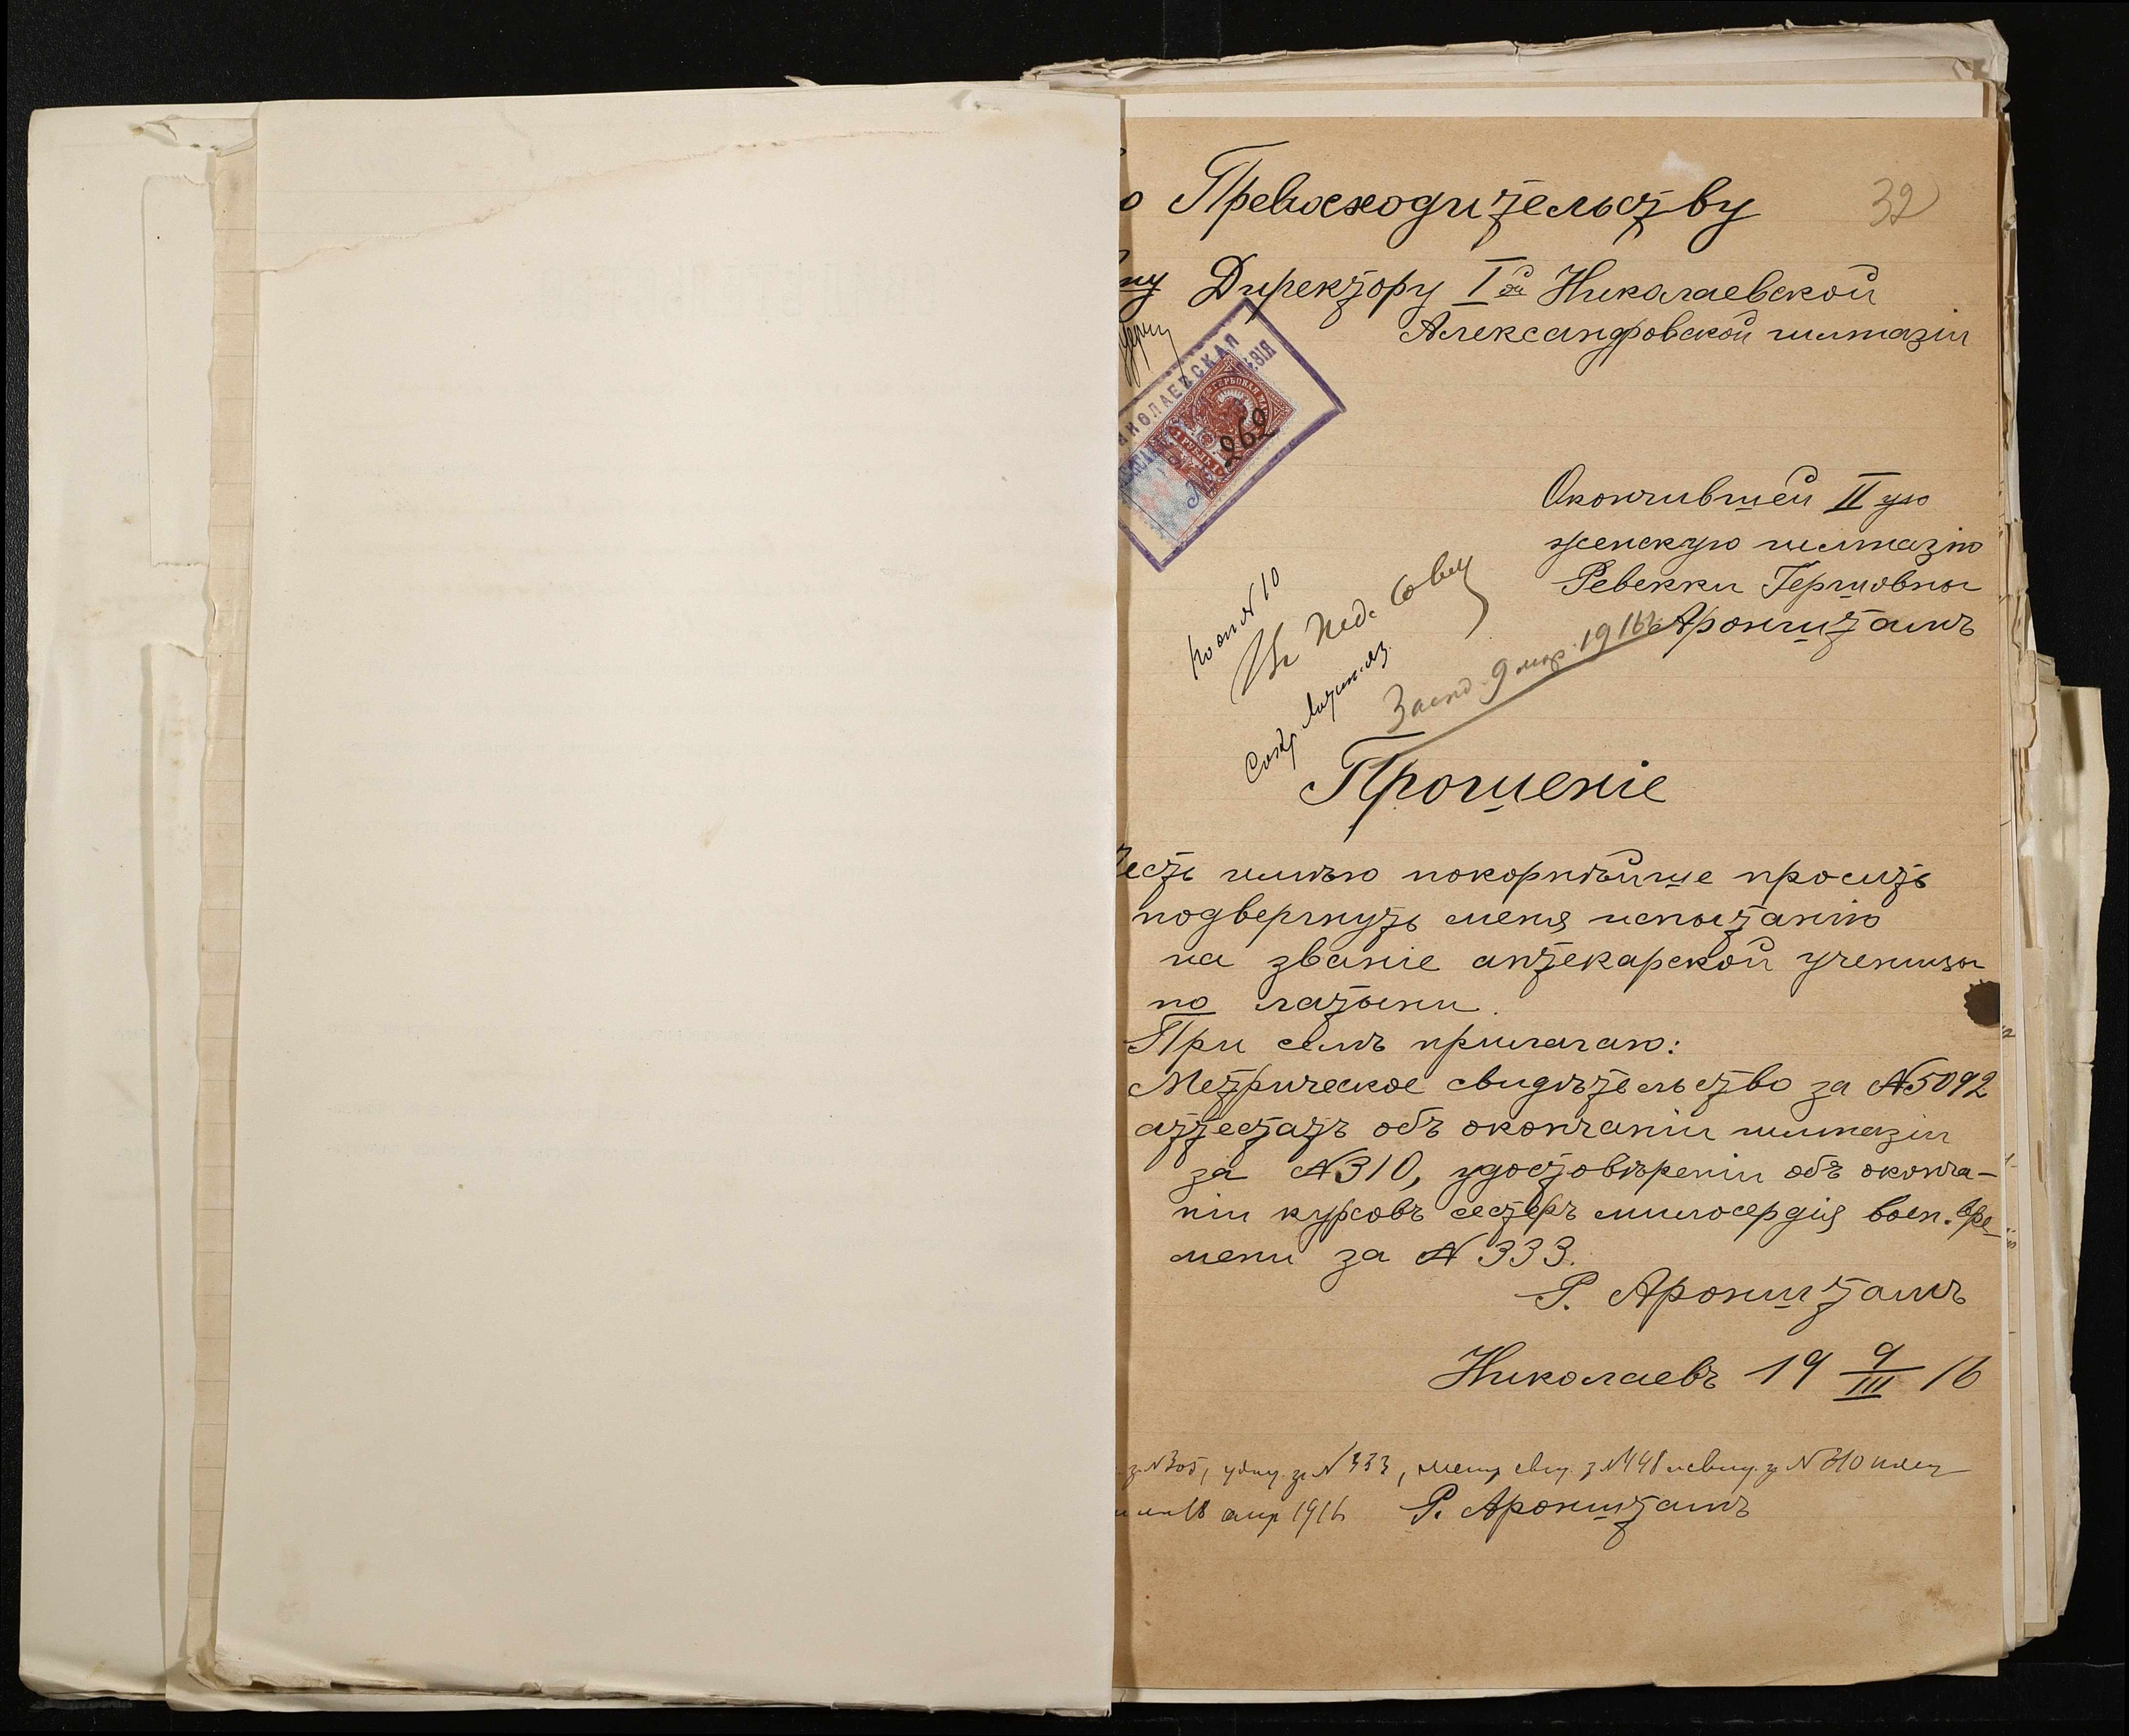 о Превосходительству
32
ну Директору I ой Николаевской
Александровской гимназіи
НИКОЛАЕВСКАЯ
262
Окончившей II ую
женскую гимназію
Ревекки Гершовны
Аронштамъ
Въ Пед. Совет
Засед. 9 мар. 1916 г.
Прошеніе
Честь имѣю покорнѣйше просить
подвергнуть меня испытанію
на званіе аптекарской ученицы
по латыни.
При семъ прилагаю:
Метрическое свидѣтельство за № 5092
аттестатъ объ окончаніи гимназіи
за № 310, удостовѣреніи объ оконча-
ніи курсовъ сестеръ милосердія воен. вре-
мени за № 333.
Р. Аронштамъ
Николаевъ 19 9/III 16
з. № 305, удост. за № 333, метр. свид. з. № 448 и свид. з. № 310
18 апр 1916 Р. Аронштамъ